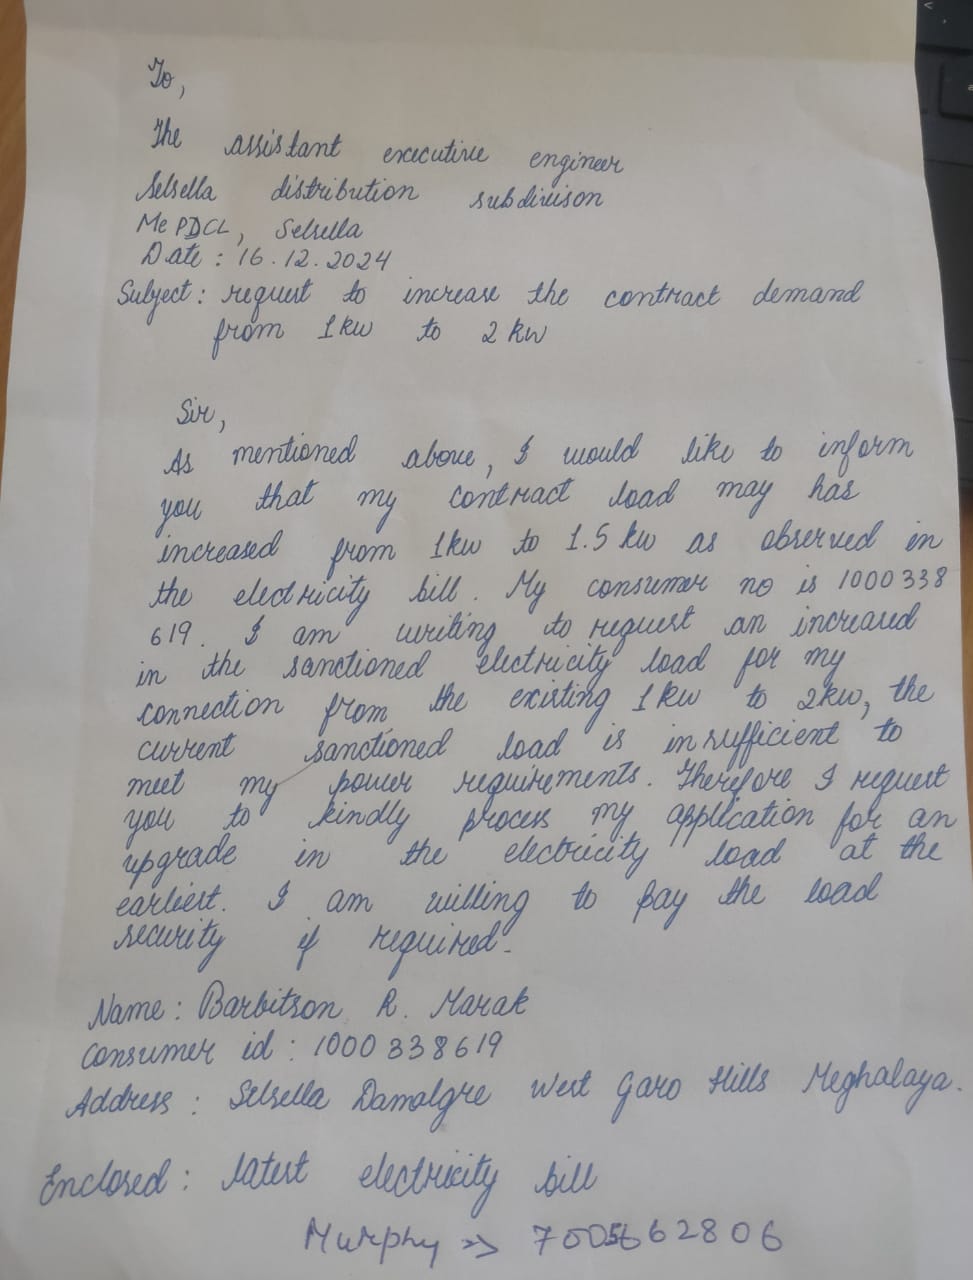 To,
The assistant executive engineer
Selsella distribution subdivison
MePDCL, Selsella
Date : 16.12.2024
Subject : request to increase the contract demand
from 1kw to 2 kw
Sir,
As mentioned above, I would like to inform
you that my contract load may has
increased from 1kw to 1.5 kw as observed in
the electricity bill. My consumer no is 1000338
619. I am writing to request an increased
in the sanctioned electricity load for my
connection from the existing 1kw to 2kw, the
current sanctioned load is insufficient to
meet my power requirements. Therefore I request
you to kindly process my application for an
upgrade in the electricity load at the
earliest. I am willing to pay the load
security if required.
Name : Barbitson R. Marak
Consumer id : 1000338619
Address : Selsella Damalgre West Garo Hills Meghalaya.
Enclosed : latest electricity bill
Murphy >>